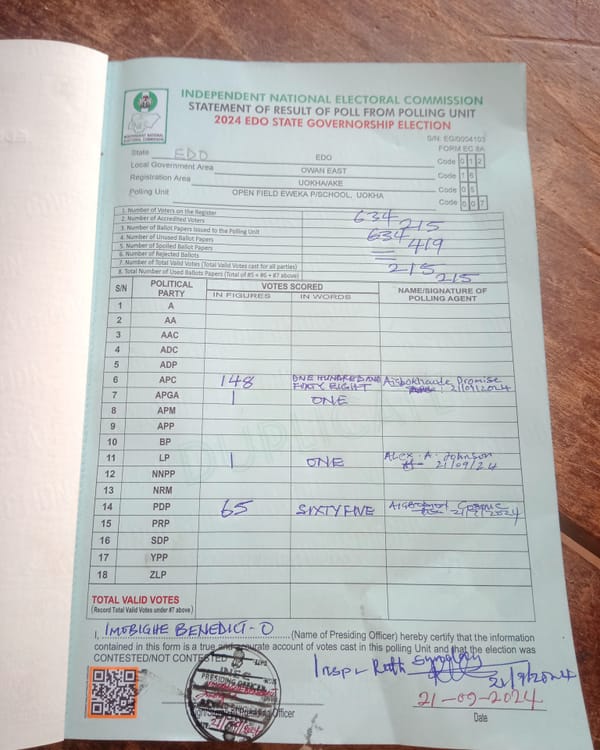 INDEPENDENT NATIONAL ELECTORAL COMMISSION
STATEMENT OF RESULT OF POLL FROM POLLING UNIT
2024 EDO STATE GOVERNORSHIP ELECTION
S/N: EG/0004103
FORM EC 8A
State EDO EDO Code 0 1 2
Local Government Area OWAN EAST Code 1 6
Registration Area UOKHA/AKE Code 0 5
Polling Unit OPEN FIELD EWEKA P/SCHOOL, UOKHA Code 0 0 7
1. Number of Voters on the Register 634
2. Number of Accredited Voters 215
3. Number of Ballot Papers Issued to the Polling Unit 634
4. Number of Unused Ballot Papers 419
5. Number of Spoiled Ballot Papers
6. Number of Rejected Ballots
7. Number of Total Valid Votes (Total Valid Votes cast for all parties) 215
8. Total Number of Used Ballots Papers (Total of #5 + #6 + #7 above) 215
S/N POLITICAL PARTY VOTES SCORED NAME/SIGNATURE OF POLLING AGENT
IN FIGURES IN WORDS
1 A
2 AA
3 AAC
4 ADC
5 ADP
6 APC 148 ONE HUNDRED AND FORTY EIGHT Promise 21/09/2024
7 APGA 1 ONE
8 APM
9 APP
10 BP
11 LP 1 ONE Alex . A . Johnson 21/09/24
12 NNPP
13 NRM
14 PDP 65 SIXTY FIVE
15 PRP
16 SDP
17 YPP
18 ZLP
DUPLICATE
TOTAL VALID VOTES
(Record Total Valid Votes under #7 above)
I, IMOBIGHE BENEDICT - O (Name of Presiding Officer) hereby certify that the information
contained in this form is a true and accurate account of votes cast in this polling Unit and that the election was
CONTESTED/NOT CONTESTED
PRESIDING OFFICER
21-09-2024
Date